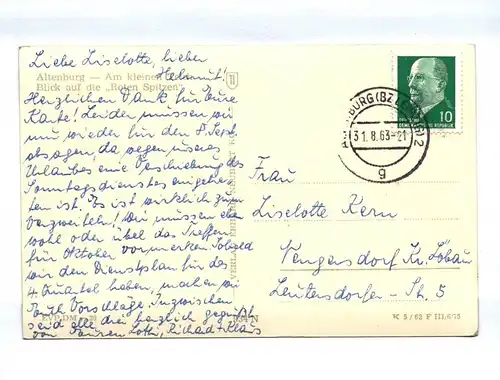 Liebe Liselotte, lieber
Helmut!
Altenburg — Am kleinen
Blick auf die „Roten Spitzen"
Herzlichen Dank für Eure
Karte! Leider müssen wir
nun wieder für den 8. Sept.
absagen, da wegen unseres
Urlaubes eine Verschiebung des
Sonntagsdienstes eingetre-
ten ist. Es ist wirklich zum
Verzweifeln! Wir müssen eben
wohl oder übel das Treffen
für Oktober vormerken. Sobald
wir den Dienstplan für das
4. Quartal haben, machen wir
Euch Vorschläge. Inzwischen
seid alle drei herzlich gegrüßt
von Euren Lotti, Richard + Klaus
EVP DM -,20
VERLAG
ALTENBURG (BZ LEIPZIG) 2
31.8.63-21
g
10
DEUTSCHE DEMOKRATISCHE REPUBLIK
Frau
Liselotte Kern
Neugersdorf Kr. Löbau
Leutersdorfer - St. 5
K 5/63 F III/6/15